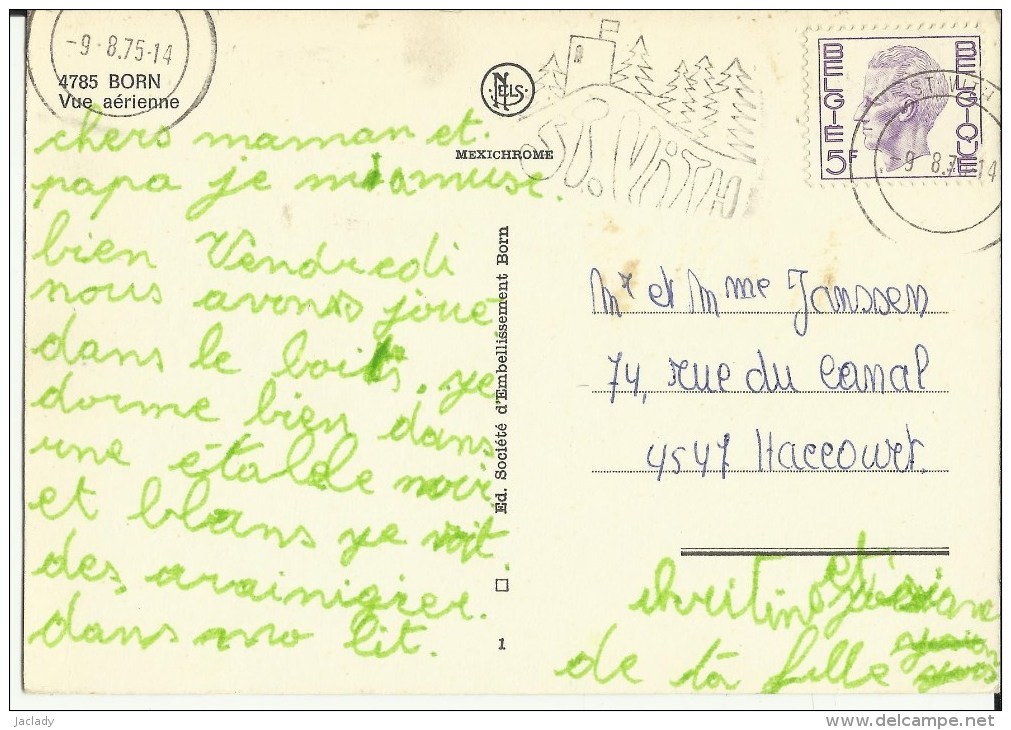 -9-8.75-14
4785 BORN
Vue aérienne
NELS
MEXICHROME
ST. VITH
BELGIE 5F
BELGIQUE
ST. VITH
-9 8.75-14
chers maman et
papa je m'amuse
bien Vendredi
nous avons joué
dans le bois. je
dorme bien dans
une étable noir
et blans je voit
des arainigrer.
dans mo lit.
Ed. Société d'Embellissement Born
1
Mr et Mme Janssen
74, rue du Canal
4547 Haccourt.
et
de ta fille
jaclady
www.delcampe.net